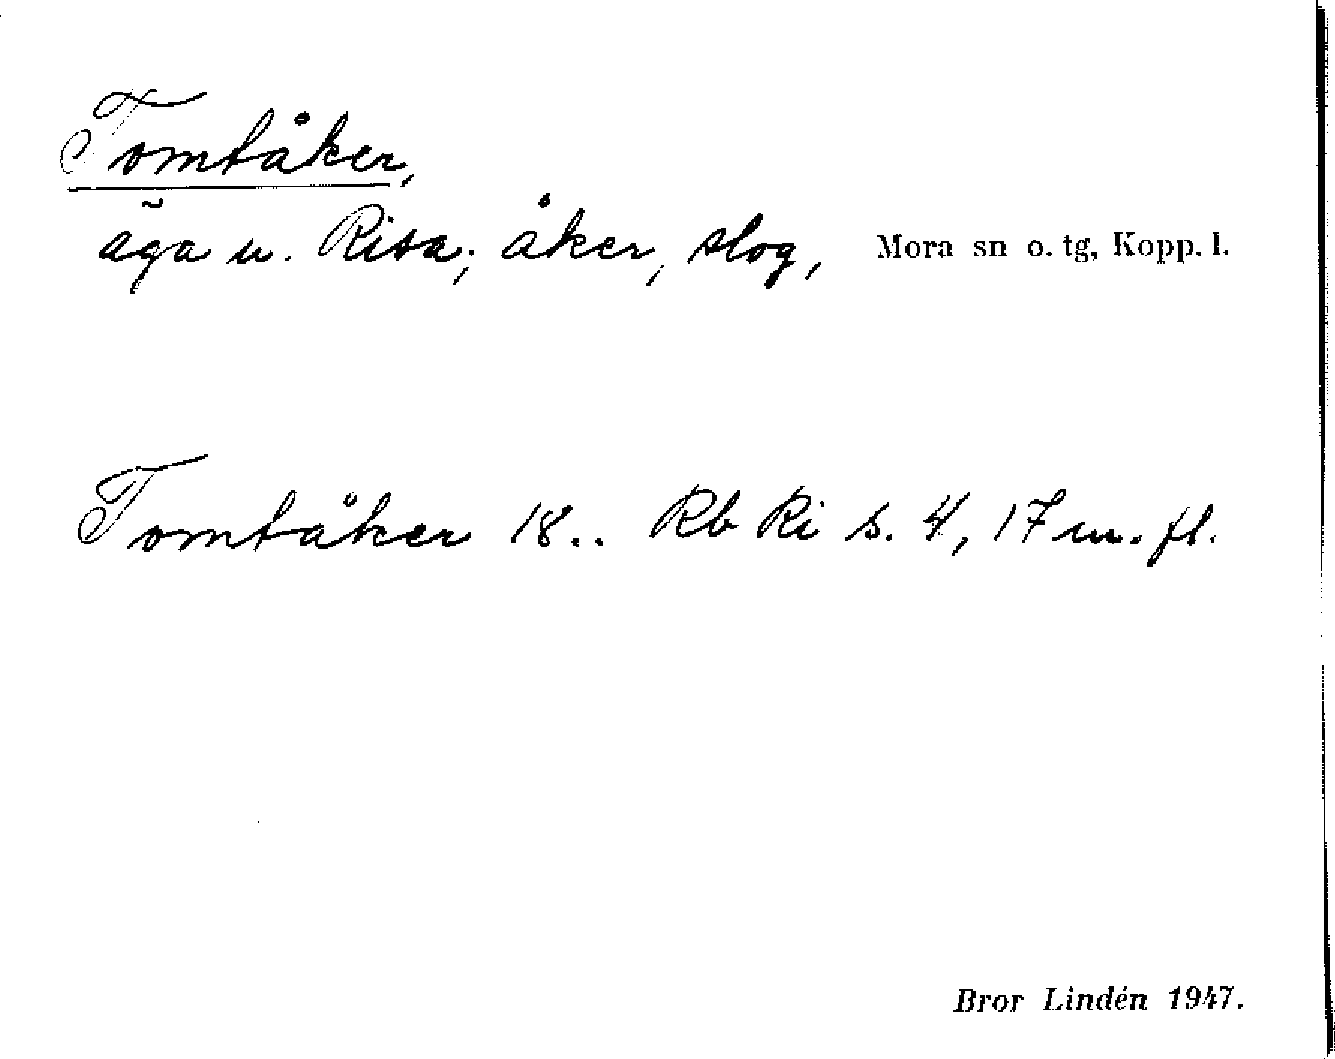 Tomtåker,
äga u. Risa; åker, slog, Mora sn o. tg, Kopp. l.
Tomtåker 18.. Rb Ri s. 4, 17 m. fl.
Bror Lindén 1947.